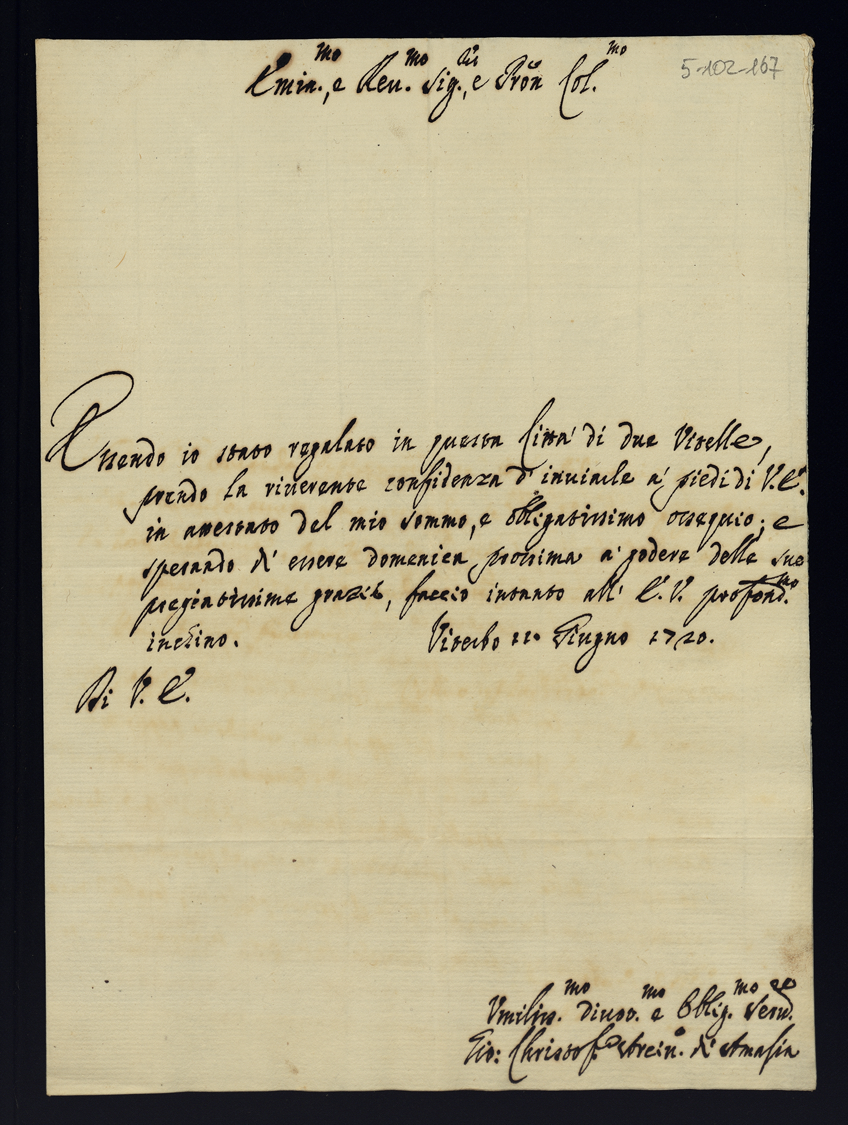 Emin.mo, e Reu.mo Sig.re, e Pron Col.mo
5-102-167
Essendo io stato regalato in questa Città di due Vitelle,
prendo la riuerente confidenza d' inuiarle a' piedi di V.E.
in attestato del mio sommo, e obbligatissimo ossequio; e
sperando di essere domenica prossima a' godere delle sue
pregiatissime grazie, faccio intanto all' E.V. profond.mo
inchino. Viterbo 11 Giugno 1720.
Di V. E.
Vmiliss.mo Diuot.mo e Obblig.mo Seru.re
Gio: Christof.o Arciu.o di Amasia